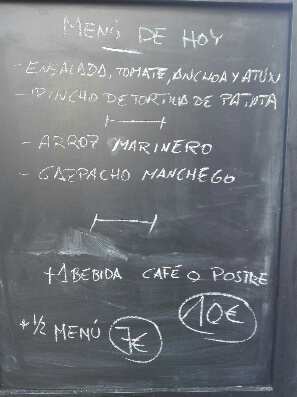 MENÚ DE HOY
- ENSALADA, TOMATE, ANCHOA Y ATÚN
- PINCHO DE TORTILLA DE PATATA
- ARROZ MARINERO
- GAZPACHO MANCHEGO
+ 1 BEBIDA CAFÉ O POSTRE
10€
* 1/2 MENÚ 7€